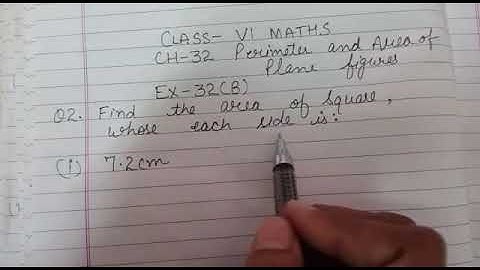 CLASS- VI MATHS
CH-32 Perimeter and Area of
Plane figures
EX-32(B)
Q2. Find the area of square,
whose each side is:
(i) 7.2cm